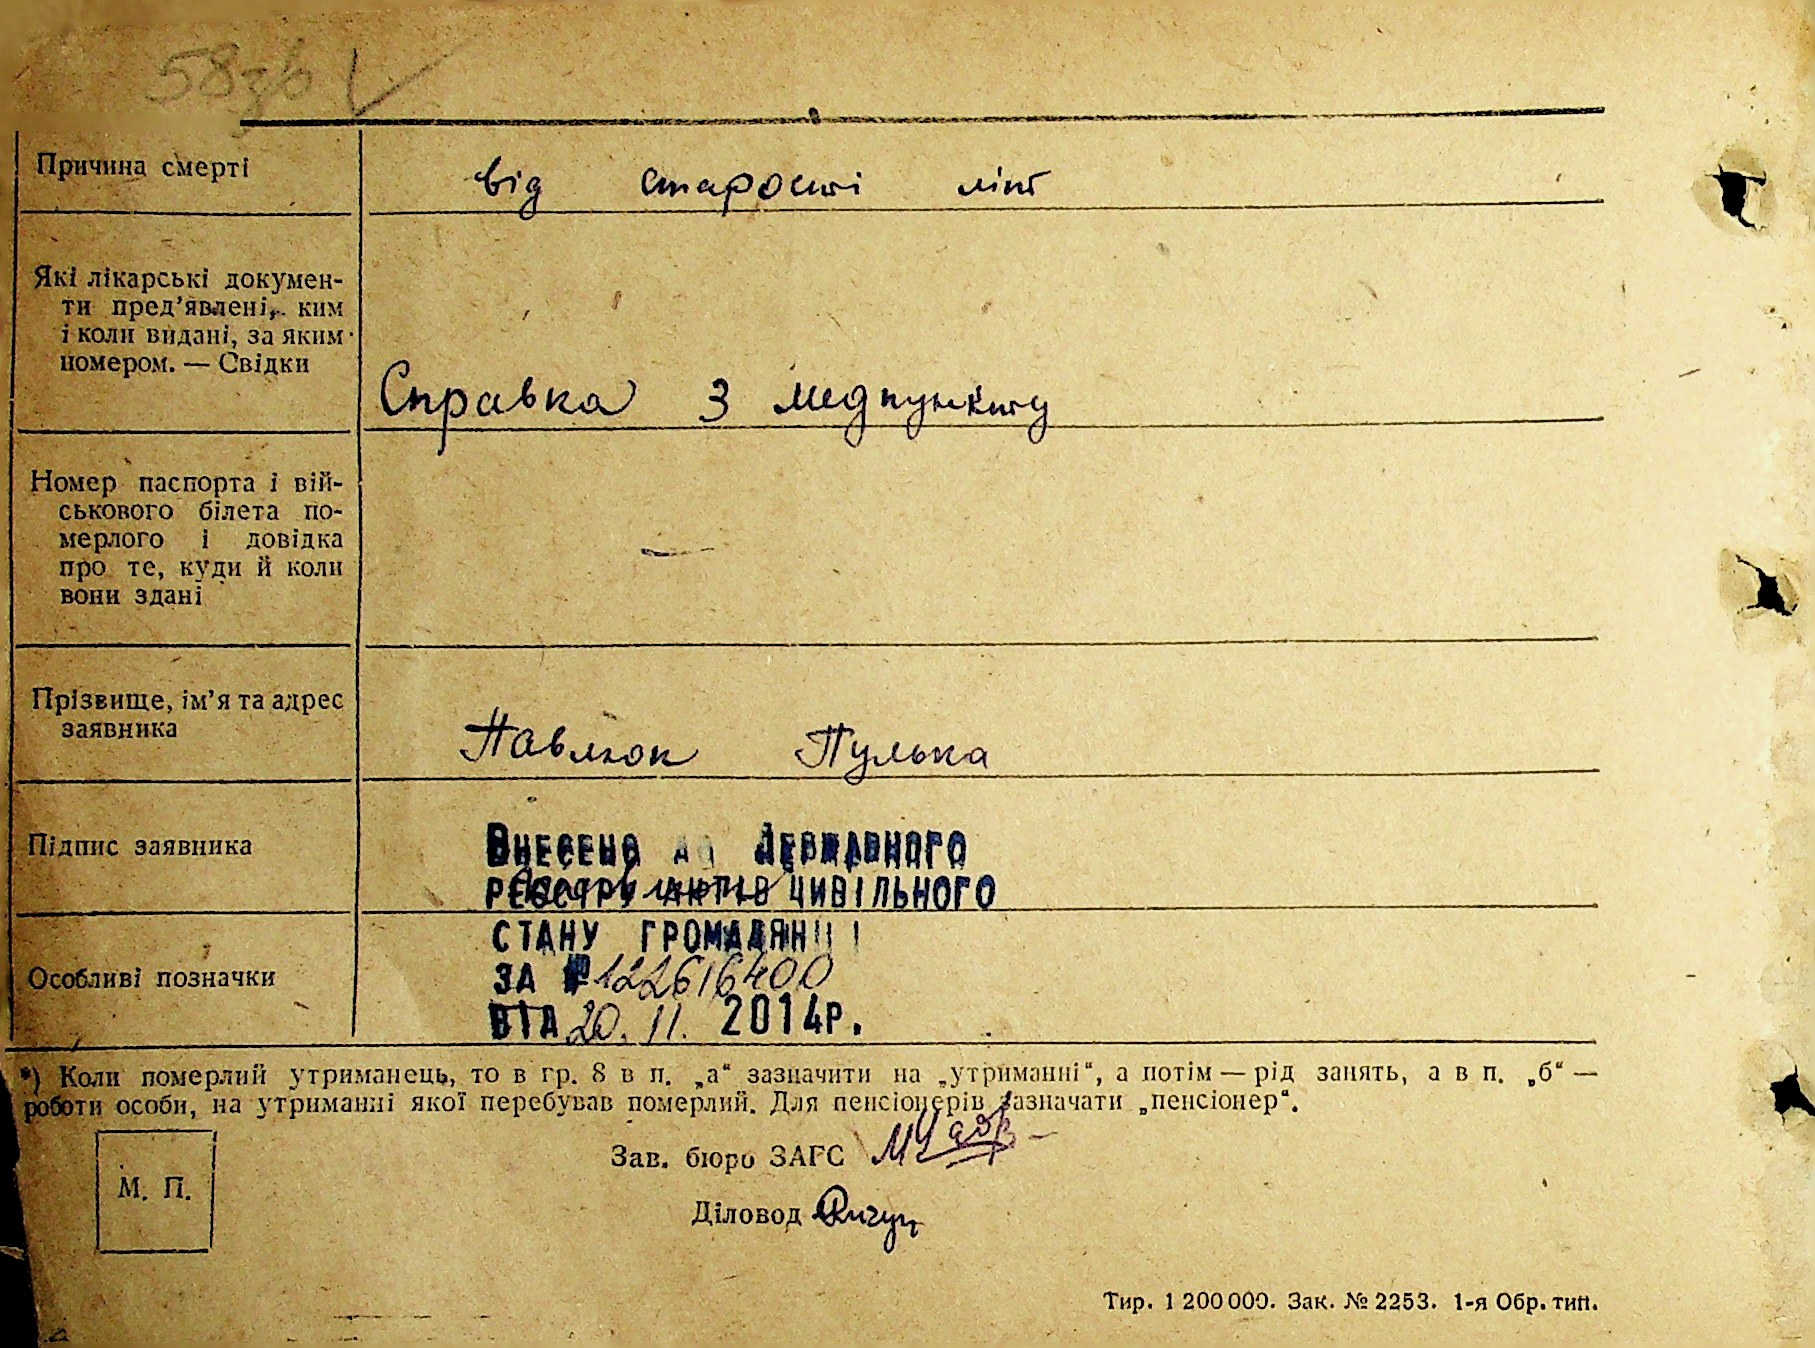 58зв
Причина смерті
від старості літ
Які лікарські докумен-
ти пред’явлені, ким
і коли видані, за яким
номером. — Свідки
Справка з медпункту
Номер паспорта і вій-
ськового білета по-
мерлого і довідка
про те, куди й коли
вони здані
—
Прізвище, ім’я та адрес
заявника
Павлюк Пулька
Підпис заявника
Внесено до Державного
реєстру актів цивільного
стану громадян
Особливі позначки
за № 122616400
від 20. 11. 2014р.
*) Коли померлий утриманець, то в гр. 8 в п. „а“ зазначити на „утриманні“, а потім — рід занять, а в п. „б“ —
роботи особи, на утриманні якої перебував померлий. Для пенсіонерів зазначати „пенсіонер“.
М. П.
Зав. бюро ЗАГС
Діловод
Тир. 1 200 000. Зак. № 2253. 1-я Обр. тип.